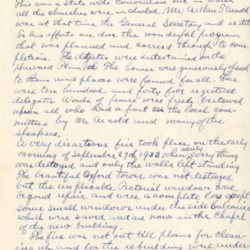 This was a State wide Convention one in which
all the churches were included. Mr. Arthur Arnold
was at that time the General Secretary and it
To his efforts are due the wonderful program
that was planned and carried through to com-
pletion. The delegates were entertained on the
Harvard Plan. The homes were generously opened
to them and places were found for all. There
were one hundred and forty five registered
delegates. Words of praise were freely bestowed
upon all who had a part on the local com-
mittee by Mr Arnold and many of the
speakers.
A very disastrous fire took place in the early
morning of September 17th 1928 when every thing
was destroyed and only the walls left standing.
The beautiful Oxford tower was not destroyed
but the irreplacable Pictorial windows were
beyond repair and were a complete loss except
some small windows under the side balconies
which were saved and are now in the Chapel
of the new building.
The fire was not out till plans for clean-
ing up and for the rebuilding were